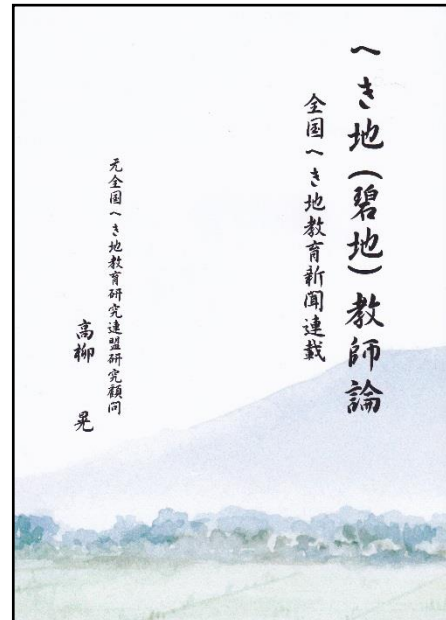 へき地(碧地)教師論
全国へき地教育新聞連載
元全国へき地教育研究連盟研究顧問
高柳 晃